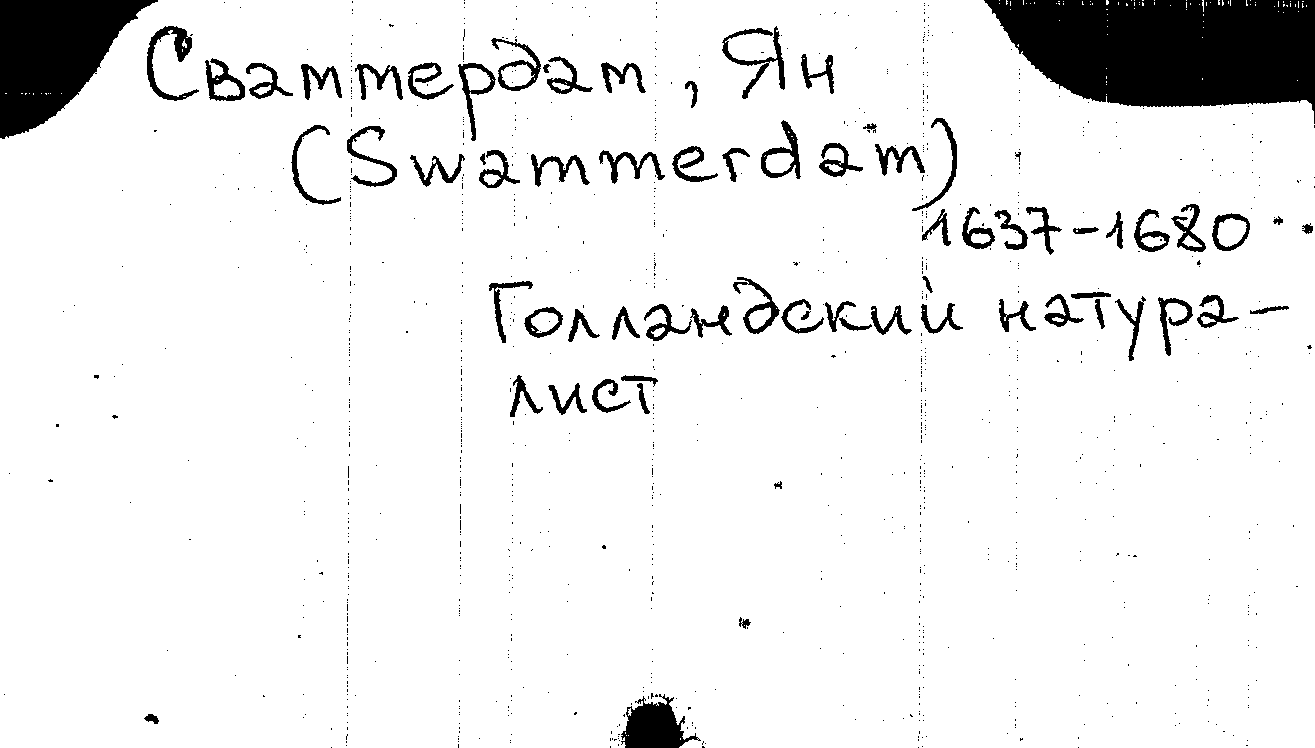 Сваммердам, Ян
(Swammerdam)
1637-1680
Голландский натура-
лист